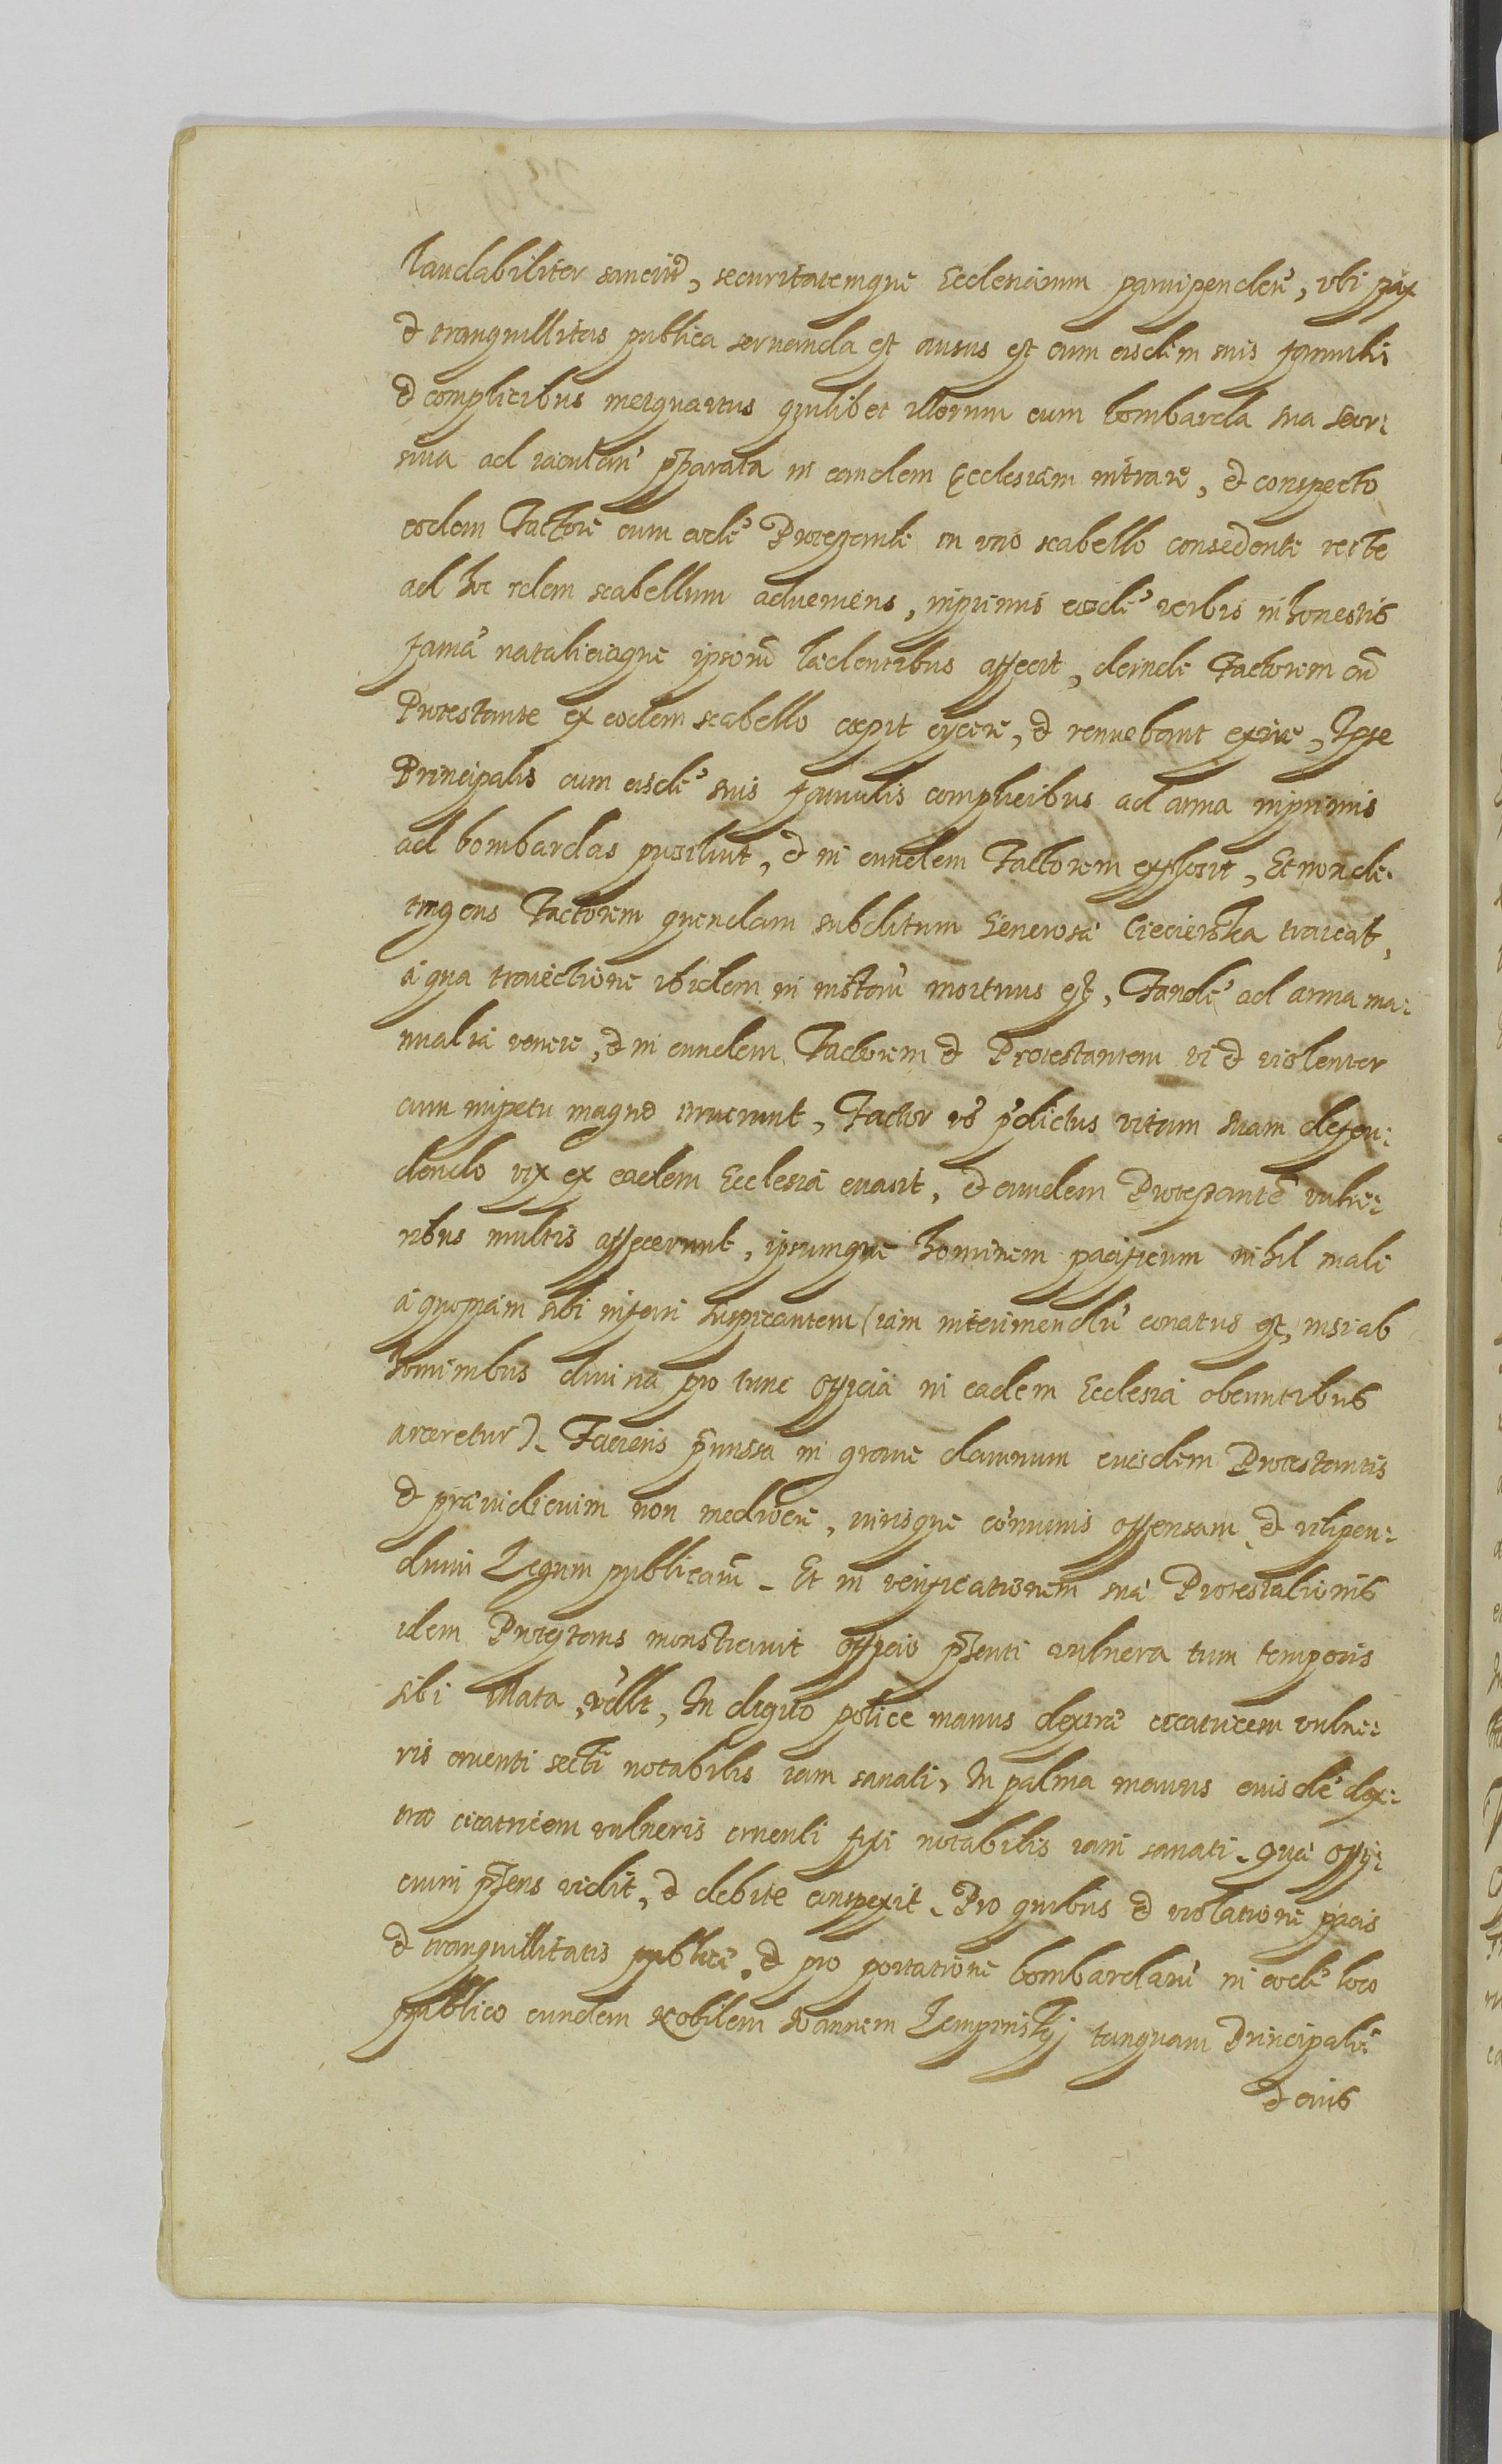 laudabiliter sanciuit, securitatemque Ecclesiarum paruipenden', vbi pax
et tranquillitas publica seruanda est ausus est cum eisdem suis famulis
et complicibus metquartus quilibet illorum cum bombarda sua seor:
siua ad iaculan' pparata in eandem Ecclesiam intrare, et conspecto
eodem Factore cum eode' Protestante in vno scabello consedente recte
ad hoc idem scabellum adueniens, inprimis eosde' verbis inhonestis
fama' nataliciaque ipsoru' laedentibus affecit, deinde Factorem cu'
Protestante ex eodem scabello coepit eycere, et renuebant exire, Ipse
Principalis cum eisde' suis famulis complicibus ad arma inprimis
ad bombardas prosiliuit, et in eundem Factorem explosit, Et non de:
tingens Factorem quendam subditum Generosae Ciecierska traiecit,
a qua traiectione ibidem in instan' mortuus est, Tande' ad arma ma:
nualia venere, et in eundem Factorem et Protestantem vi et violenter
cum impetu magno irruerunt, Factor vo' p'dictus vitam suam defen:
dendo vix ex eadem Ecclesia euasit, et eundem Protestante' vulne:
ribus multis affecerunt, ipsumque hominem pacificum nihil mali
a quopiam sibi inferri suspicantem (iam interimendu' conatus est, nisi ab
hominibus diuina pro tunc officia in eadem Ecclesia obeuntibus
arceretur). Faciens p'missa in graue damnum eiusdem Protestantis
et praeiudicium non mediocre, iurisque co'munis offensam, et vilipen:
dium Legum publicaru'. Et in verificationem suae Protestationis
idem Protestans monstrauit officio p'senti vulnera tum temporis
sibi illata, vdllt, In digito police manus dextrae cicatricem vulne:
ris cruenti secti notabilis iam sanati, In palma manus eiusde' dex:
trae cicatricem vulneris cruenti fixi notabilis iam sanati. Quae offi:
cium p'sens vidit, et debite conspexit. Pro quibus et violatione pacis
et tranquillitatis publicae, et pro portatione bombardaru' in eode' loco
publico eundem Nobilem Ioannem Lempinskj tanquam Principale'
et eius